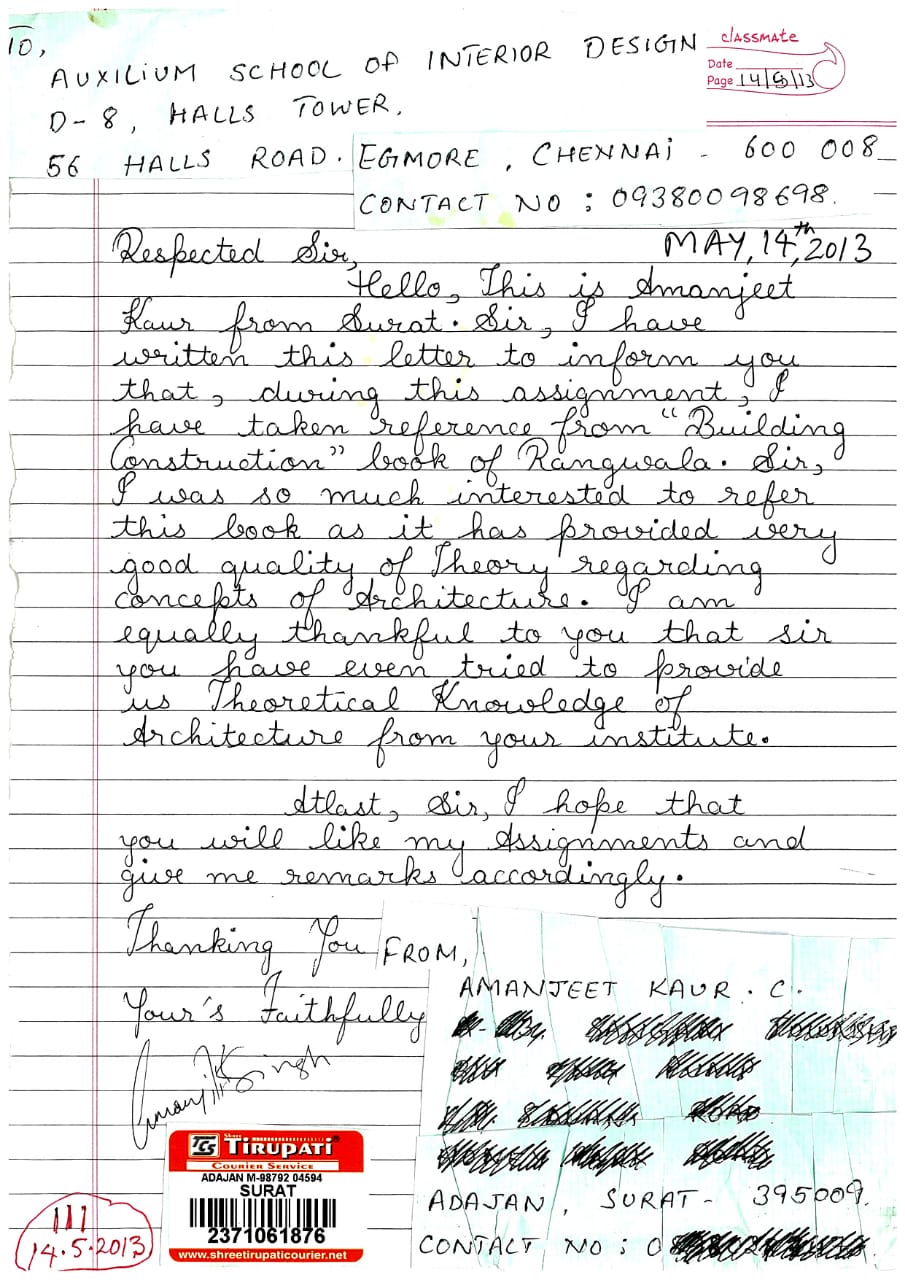 TO,
AUXILIUM SCHOOL OF INTERIOR DESIGN
D-8, HALLS TOWER.
56 HALLS ROAD. EGMORE, CHENNAI - 600 008
CONTACT NO : 09380098698.
classmate
Date
Page 14/5/13
MAY, 14th, 2013
Respected Sir,
Hello, This is Amanjeet
Kaur from Surat. Sir, I have
written this letter to inform you
that, during this assignment, I
have taken reference from "Building
Construction" book of Rangwala. Sir,
I was so much interested to refer
this book as it has provided very
good quality of Theory regarding
concepts of Architecture. I am
equally thankful to you that sir
you have even tried to provide
us Theoretical Knowledge of
Architecture from your institute.
Atlast, Sir, I hope that
you will like my Assignments and
give me remarks accordingly.
Thanking You
Your's Faithfully
FROM,
AMANJEET KAUR. C.
ADAJAN, SURAT- 395009.
CONTACT NO : 0
TCS Shree TIRUPATI
COURIER SERVICE
ADAJAN M-98792 04594
SURAT
2371061876
www.shreetirupaticourier.net
111
14.5.2013